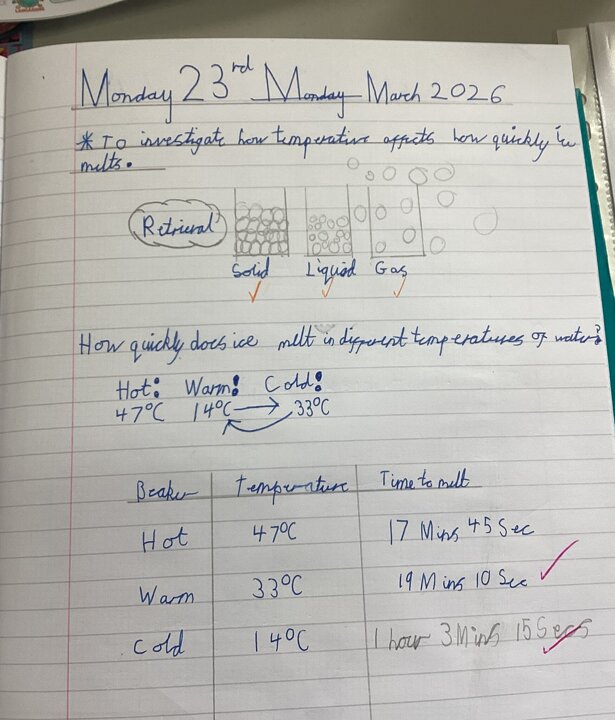 Monday 23rd Monday March 2026
* To investigate how temperature affects how quickly ice
melts.
Retrieval
Solid Liquid Gas
How quickly does ice melt in different temperatures of water?
Hot: Warm! Cold!
47°C 14°C 33°C
Beaker Temperature Time to melt
Hot 47°C 17 Mins 45 Sec
Warm 33°C 19 Mins 10 Sec
Cold 14°C 1 hour 3 Mins 15 Secs